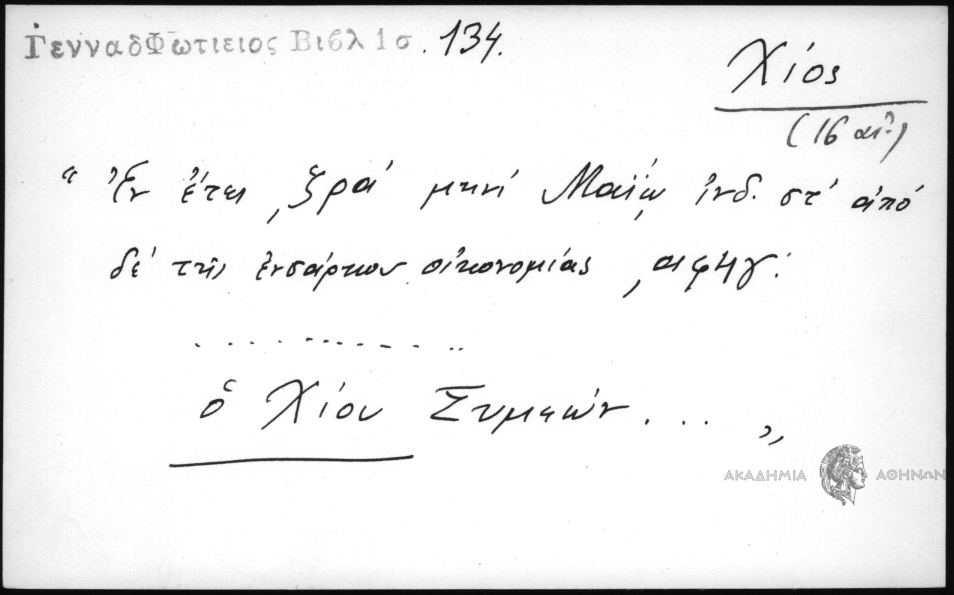 Γενναδ Φωτιειος Βιβλ 1σ. 134.
Χίος
(16 αι.)
"Ἐν ἔτει ͵ζρα' μηνί Μαΐῳ ἰνδ. στ' ἀπό
δέ τῆς ἐνσάρκου οἰκονομίας ͵αφϟγ'.
..............
ὁ Χίου Συμεών . . . "
ΑΚΑΔΗΜΙΑ ΑΘΗΝΩΝ